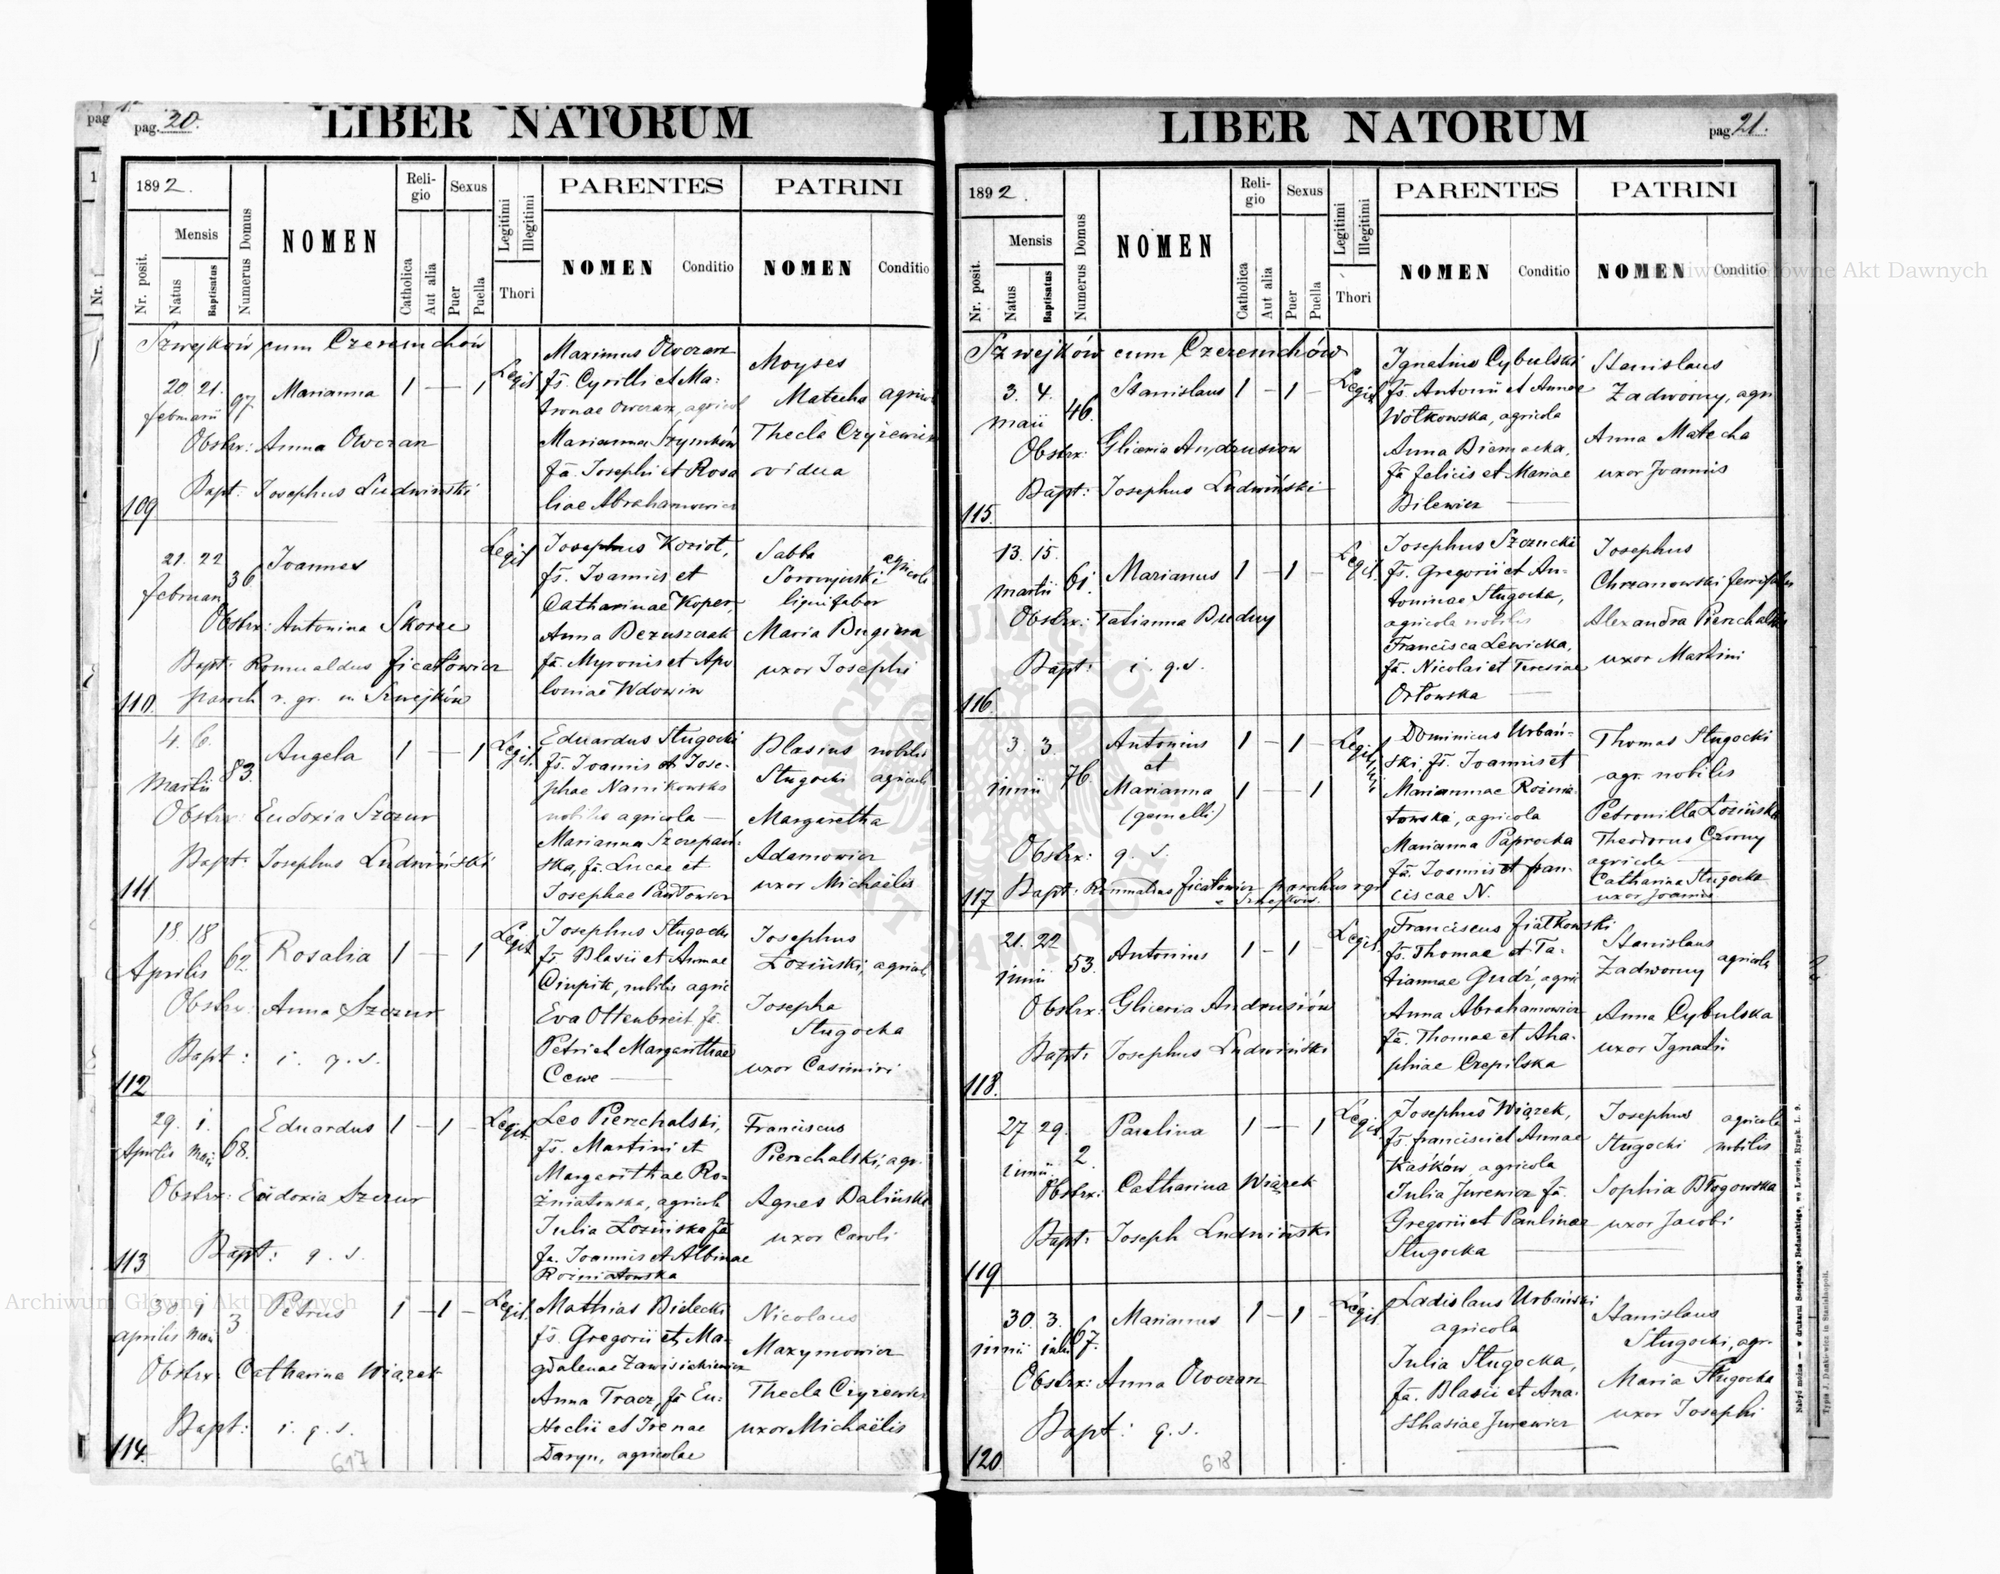 pag. 20.
LIBER NATORUM
1892.
Nr. posit.
Mensis
Natus
Baptisatus
Numerus Domus
NOMEN
Reli-
gio
Catholica
Aut alia
Sexus
Puer
Puella
Legitimi
Illegitimi
Thori
PARENTES
NOMEN
Conditio
PATRINI
NOMEN
Conditio
Szwejków cum Czeremchów
109
20. 21.
februarii
97
Marianna
1 — 1
Legit.
Obstrx: Anna Owczar
Bapt: Josephus Ludwiński
Maximus Owczarz
fs. Cyrilli et Ma-
tronae Owczarz, agricol
Marianna Szymków
fa. Josephi et Rosa
liae Abrahamowicz
Moyses
Matecha agricol
Thecla Czyżewicz
vidua
110.
21. 22
februarii
36
Joannes
Legit
Obstrx: Antonina Skorec
Bapt: Romualdus Ficałowicz
paroch r. gr. in Szwejków
Josephus Kozioł,
fs. Joannis et
Catharinae Koper,
Anna Bezuszczak
fa. Myronis et Apo
loniae Wdowin
Sabba agricola
lignifaber
Maria Bugiera
uxor Josephi
111
4. 6.
Martii
83.
Angela
1 — 1
Legit.
Obstrx: Eudoxia Szczur
Bapt: Josephus Ludwiński
Eduardus Sługocki
fs. Joannis et Jose-
phae Nanikowska
nobilis agricola —
Marianna Szczepań-
ska, fa. Lucae et
Josephae Pawłowicz
Blasius nobilis
Sługocki agricola
Margaretha
Adamowicz
uxor Michaëlis
112
18 18
Aprilis
62.
Rosalia
1 — 1
Legit
Obstrx: Anna Szczur
Bapt: i. q. s.
Josephus Sługocki
fs. Blasii et Annae
Ciupik, nobilis agric
Eva Ottenbreit fa.
Petri et Margarithae
Cewe —
Josephus
Łoziński, agricola
Josepha
Sługocka
uxor Casimiri
113
29. 1.
Aprilis Maii
68.
Eduardus
1 — 1 —
Legit.
Obstrx: Eudoxia Szczur
Bapt: q. s.
Leo Pierzchalski,
fs. Martini et
Margarithae Ro-
żniatowska, agricola
Julia Łozińska fa
fa. Joannis et Albinae
Rożniatowska
Franciscus
Pierzchalski, agr.
Agnes Balińska
uxor Caroli
114.
30. 1
aprilis Maii
3
Petrus
1 — 1 —
Legit.
Obstrx: Catharina Wiązek
Bapt: i. q. s.
617
Mathias Bielecki
fs. Gregorii et Ma-
gdalenae Zawisickiewicz
Anna Tracz, fa Eu-
stochii et Irenae
Daryn, agricolae
Nicolaus
Maxymowicz
Thecla Czyżewicz
uxor Michaëlis
LIBER NATORUM
pag. 21.
1892.
Nr. posit.
Mensis
Natus
Baptisatus
Numerus Domus
NOMEN
Reli-
gio
Catholica
Aut alia
Sexus
Puer
Puella
Legitimi
Illegitimi
Thori
PARENTES
NOMEN
Conditio
PATRINI
NOMEN
Conditio
Szwejków cum Czeremchów
115.
3. 4.
maii
46.
Stanislaus
1 — 1 —
Legit
Obstrx: Gliceria Andrusiow
Bapt: Josephus Ludwiński
Ignatius Cybulski
fs. Antonii et Annae
Wołkowska, agricola
Anna Biernacka,
fa felicis et Mariae
Bilewicz
Stanislaus
Zadworny, agr
Anna Matecha
uxor Joannis
116.
13. 15.
martii
61.
Marianus
1 — 1 —
Legit.
Obstrx: Tatianna Budny
Bapt: i. q. s.
Josephus Szczucki
fs. Gregorii et An-
toninae Sługocka,
agricola nobilis
Francisca Lewicka,
fa. Nicolai et Teresiae
Orłowska —
Josephus
Chrzanowski ferrifaber
Alexandra Pierzchalski
uxor Martini
117
3. 3.
junii
76.
Antonius
et
Marianna
(gemelli)
1 — 1 —
1 — 1
Legitimi
Obstrx: q. s.
Bapt: Romualdus Ficałowicz parochus r. gr.
Szwejków.
Dominicus Urbań-
ski fs. Joannis et
Mariannae Rożnia-
towska, agricola
Marianna Paprocka
fa. Joannis et fran-
ciscae N.
Thomas Sługocki
agr. nobilis
Petronilla Łozińska
Theodorus Czorny
agricola —
Catharina Sługocka
uxor Joannis
118.
21. 22
junii
53.
Antonius
1 — 1 —
Legit.
Obstrx: Gliceria Andrusiów
Bapt: Josephus Ludwiński
Franciscus Fiałkowski
fs. Thomae et Ta-
tiannae Gudź, agric
Anna Abrahamowicz
fa. Thomae et Aha-
phiae Czepilska
Stanislaus
Zadworny agricola
Anna Cybulska
uxor Ignatii
119
27 29.
junii
2.
Paulina
1 — 1
Legit
Obstrx: Catharina Wiązek
Bapt: Joseph Ludwiński
Josephus Wiązek,
fs. francisci et Annae
Kaśków, agricola
Julia Jurewicz fa.
Gregorii et Paulinae
Sługocka
Josephus agricola
Sługocki nobilis
Sophia Błogowska
uxor Jacobi
120
30. 3.
junii julii
67.
Marianus
1 — 1 —
Legit
Obstrx: Anna Owczar
Bapt: q. s.
618
Ladislaus Urbański
agricola
Julia Sługocka,
fa. Blasii et Ana-
sthasiae Jurewicz
Stanislaus
Sługocki, agr.
Maria Sługocka
uxor Josephi
Archiwum Główne Akt Dawnych
Archiwum Główne Akt Dawnych